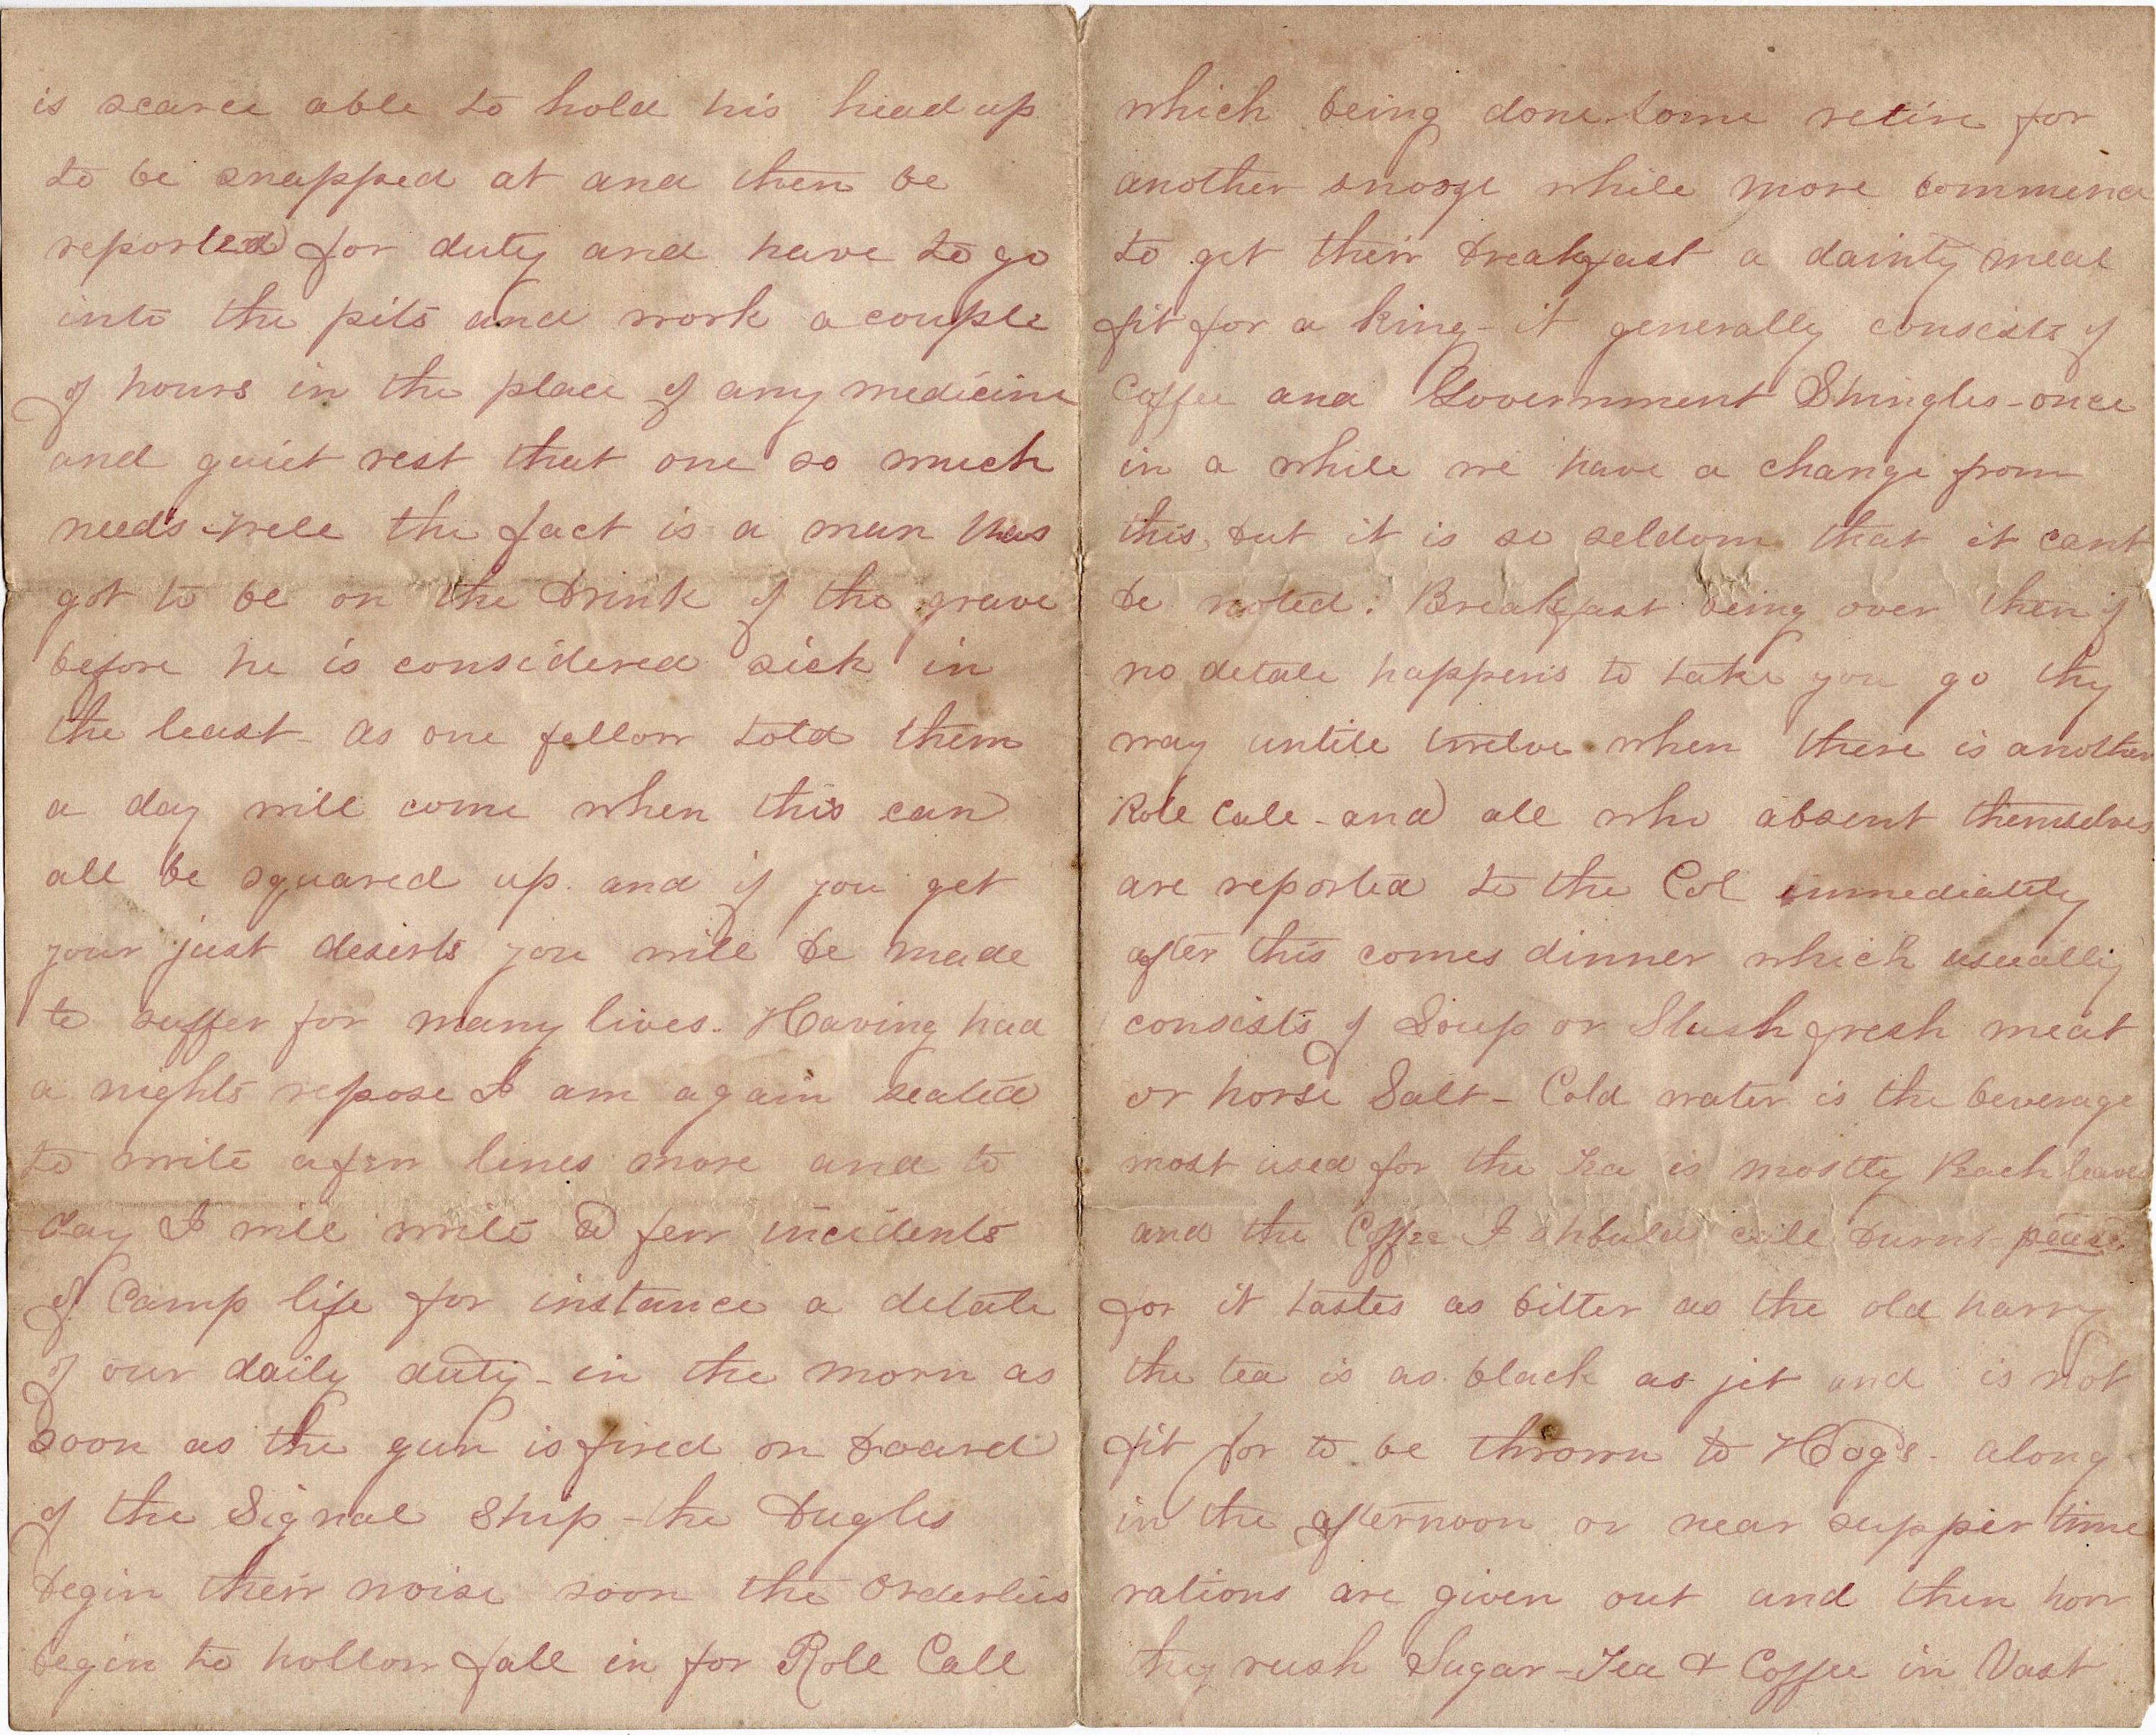 is scarce able to hold his head up
to be snapped at and then be
reported for duty and have to go
into the pits and work a couple
of hours in the place of any medicine
and quiet rest that one so much
needs - well the fact is a man has
got to be on the brink of the grave
before he is considered sick in
the least - as one fellow told them
a day will come when this can
all be squared up. and if you get
your just deserts you will be made
to suffer for many lives. Having had
a nights repose I am again seated
to write a few lines more and to
day I will write a few incidents
of Camp life for instance a detale
of our daily duty - in the morn as
soon as the gun is fired on board
of the Signal Ship - the Bugles
begin their noise soon the Orderlies
begin to hollow fall in for Role Call
which being done some retire for
another snooze while more commence
to get their breakfast a dainty meal
fit for a King - it generally conscists of
Coffee and Government Shingles - once
in a while we have a change from
this, but it is so seldom that it cant
be noted. Breakfast being over then if
no detale happens to take you go thy
way untill twelve when there is another
Role Call - and all who absent themselves
are reported to the Col immediatily
after this comes dinner which usually
conscists of Soup or Slush fresh meat
or horse Salt - Cold water is the beverage
most used for the Tea is mostly Peach leaves
and the Coffee I should call burnt pease
for it tastes as bitter as the old harry
the tea is as black as jet and is not
fit for to be thrown to Hogs. along
in the afternoon or near supper time
rations are given out and then how
they rush Sugar - Tea & Coffee in Vast